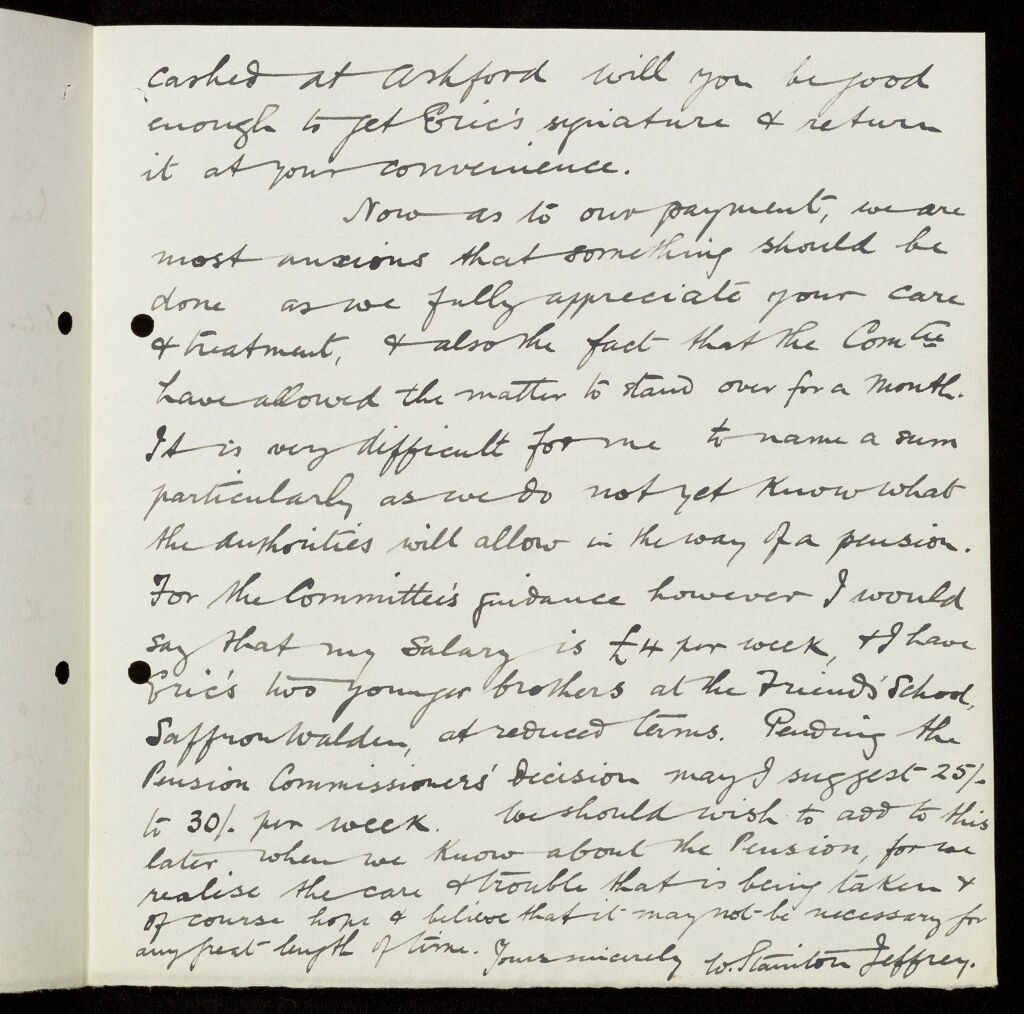 cashed at Ashford will you be good
enough to get Eric's signature & return
it at your convenience.
Now as to our payment, we are
most anxious that something should be
done as we fully appreciate your care
& treatment, & also the fact that the Comtee
have allowed the matter to stand over for a month.
It is very difficult for me to name a sum
particularly as we do not yet know what
the authorities will allow in the way of a pension.
For the Committee's guidance however I would
say that my salary is £4 per week, & I have
Eric's two younger brothers at the Friends' School,
Saffron Walden, at reduced terms. Pending the
Pension Commissioners' Decision may I suggest 25/-
to 30/- per week. We should wish to add to this
later when we know about the Pension, for we
realise the care & trouble that is being taken &
of course hope & believe that it may not be necessary for
any great length of time. Yours sincerely W. Stainton Jeffrey.